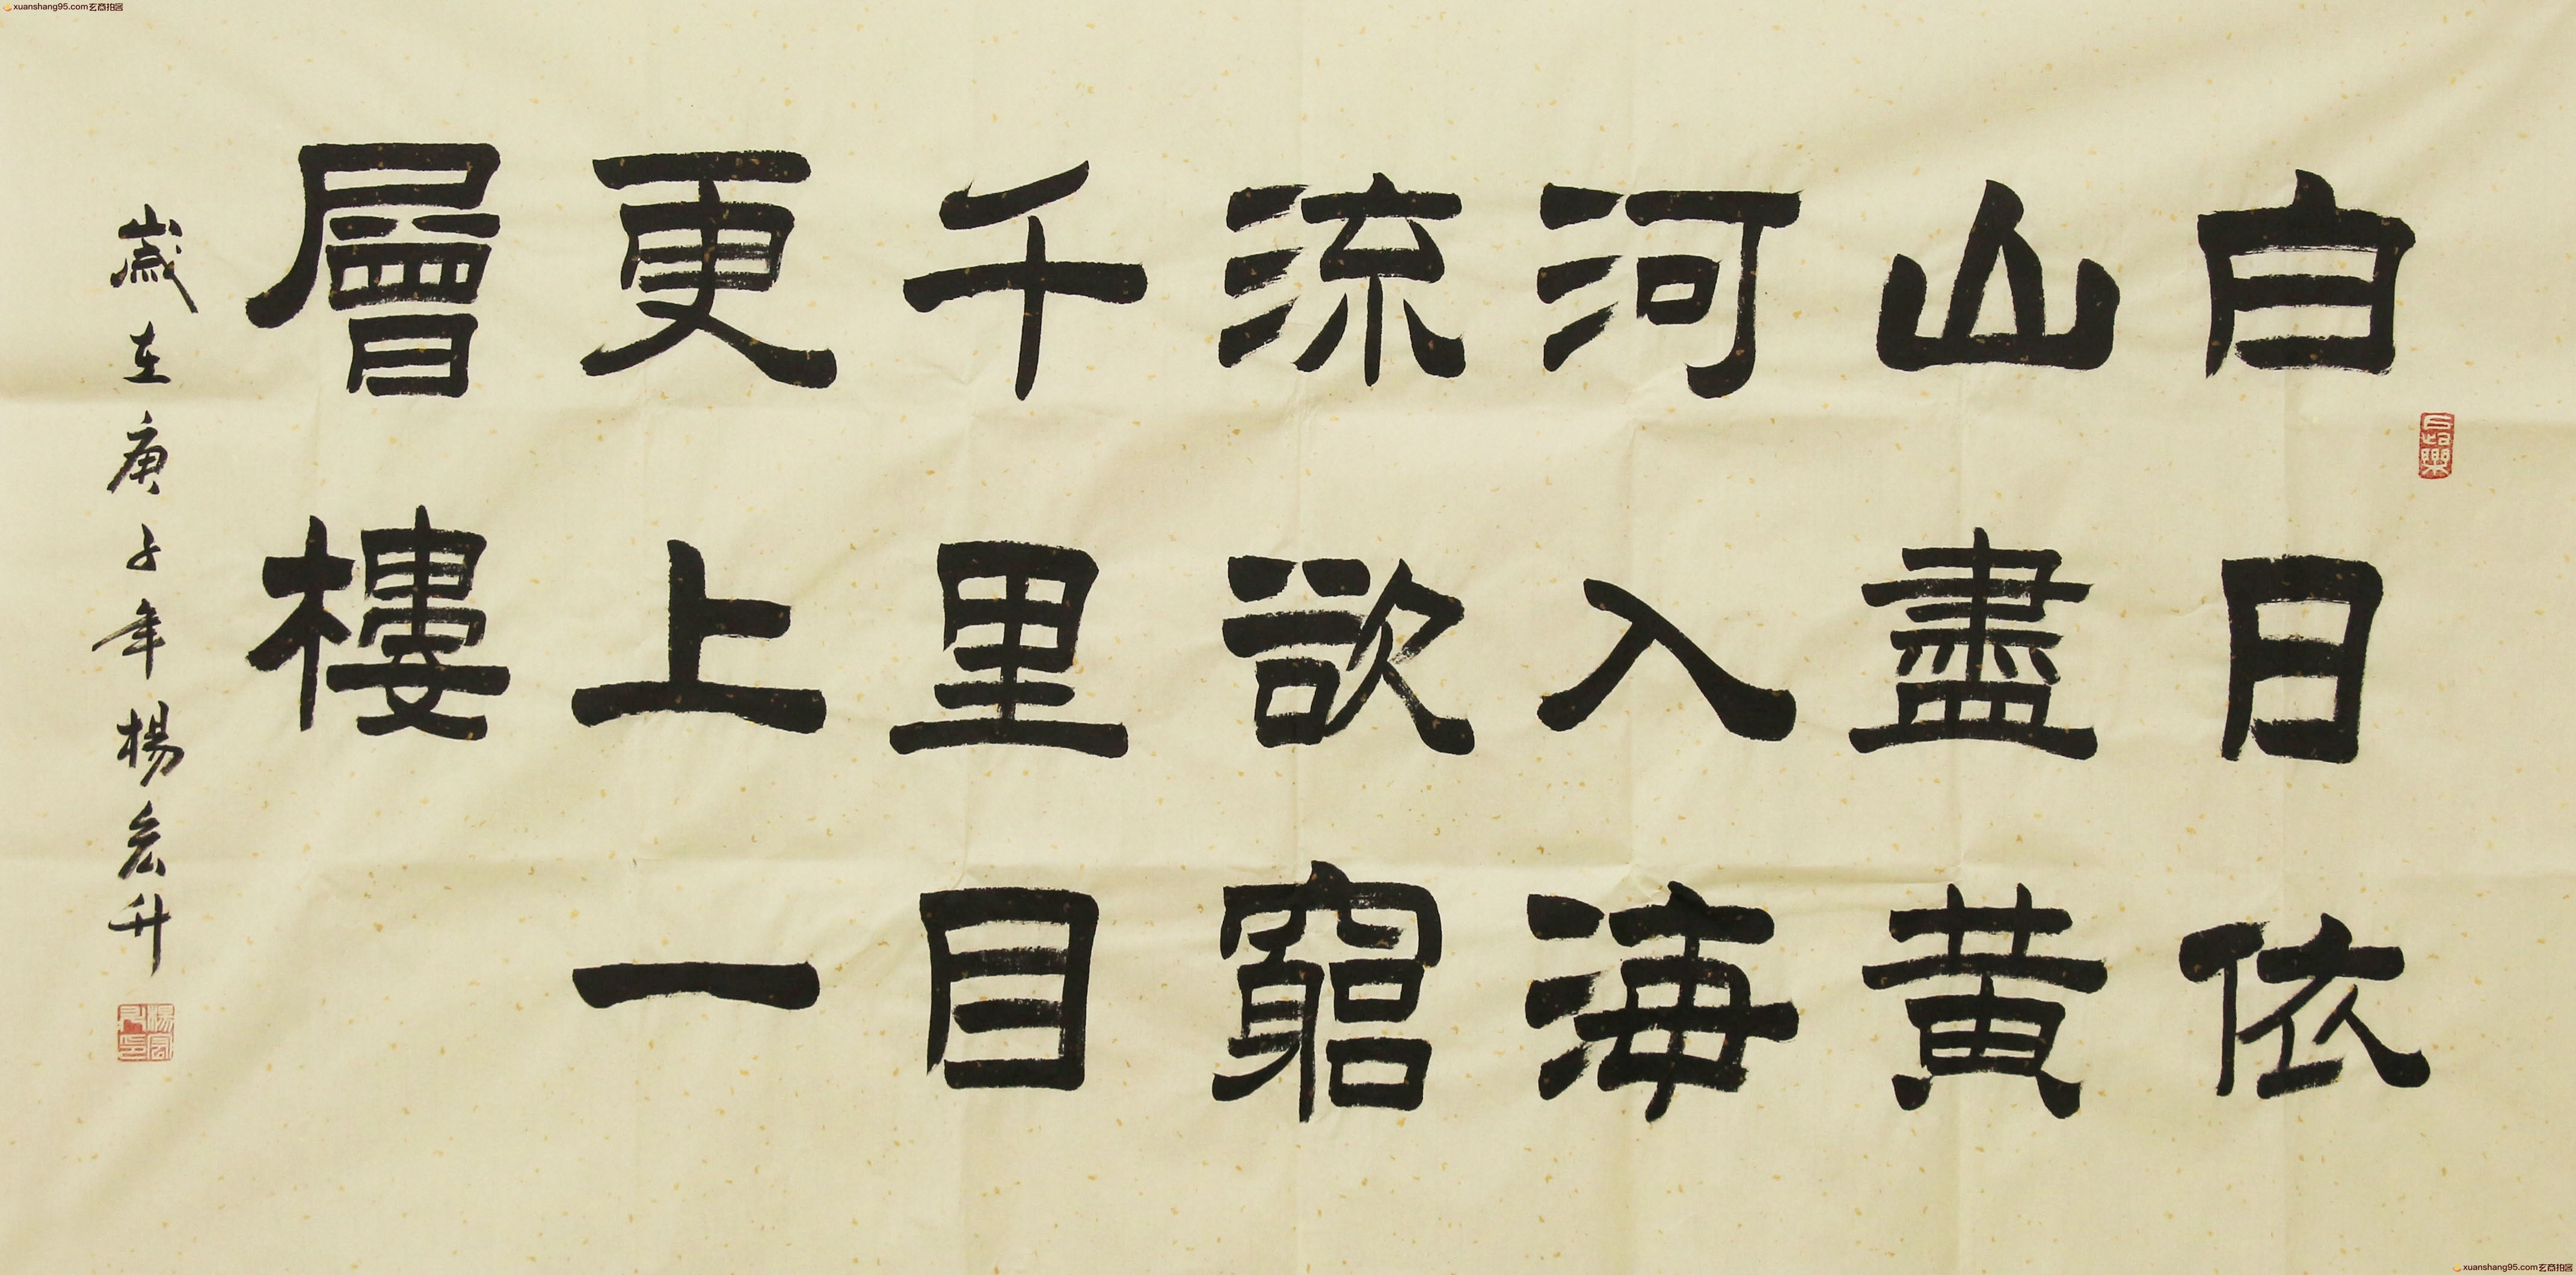 白日依
山盡黄
河入海
流欲窮
千里目
更上一
層樓
歲在庚子年楊宏升
xuanshang95.com玄商拍客
xuanshang95.com玄商拍客